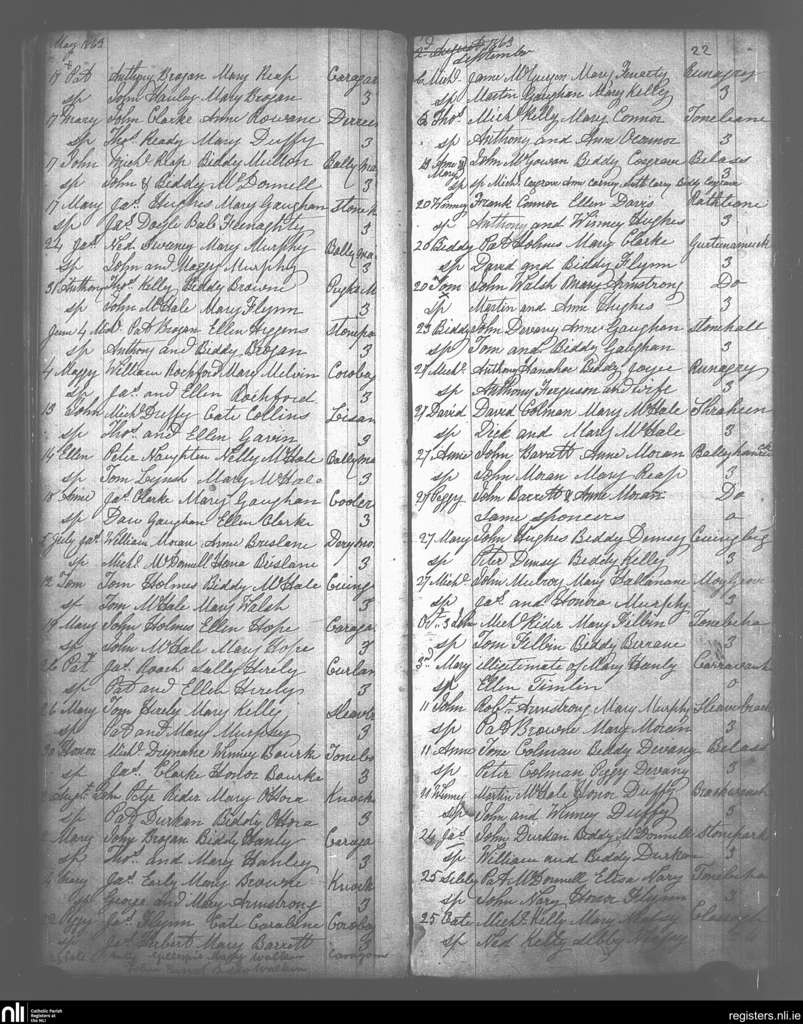 May 1863
17 Pat Anthony Brogan Mary Reap Caragan
sp John Hanley Mary Brogan 3
17 Mary John Clarke Anne Rowane Derreen
sp Thos Ready Mary Duffy 3
17 John Michl Reap Biddy Melton Bally
sp John & Biddy McDonnell 3
17 Mary Jas Hughes Mary Gaughan Stone
sp Jas Doyle Bab Feenaghty 3
24 Jas Ned Sweney Mary Murphy Bally
sp John and Maggy Murphy 3
31 Anthony Thos Kelly Biddy Browne
sp John McHale Mary Flynn 3
June 4 Michl Pat Brogan Ellen Higgins Stonepa
sp Anthony and Biddy Brogan 3
4 Maggy William Rochford Mary Melvin
sp Jas and Ellen Rochford 3
13 John Michl Duffy Cate Collins Lisan
sp Thos and Ellen Gavin 3
14 Ellen Peter Naughton Nelly McHale Bally
sp Tom Lynsh Mary McHale 3
18 Anne Jas Clarke Mary Gaughan Cooler
sp Dav Gaughan Ellen Clarke 3
5 July Jas William Moran Anne Brislane
sp Michl McDonnell Hona Bislane 3
12 Tom Tom Holmes Biddy McHale Cuing
sp Tom McHale Mary Walsh 3
19 Mary John Holmes Ellen Hope Caraga
sp John McHale Mary Hope 3
26 Pat Jas Roach Sally Hirely Curlan
sp Pat and Ellen Hirely 3
26 Mary Tom Hirely Mary Kelly
sp Pat and Mary Murphy 3
30 Honor Michl Winney Bourke Toneba
sp Jas Clarke Honor Bourke 3
Tom Peter Rider Mary OHora Knock
sp Pat Durkan Biddy OHora 3
Mary Tony Brogan Biddy Hanly Caraga
sp Thos and Mary Hanley 3
Mary Jas Early Mary Browne Knock
sp George and Mary Armstrong 3
Peggy Jas Flynn Cate Caraline
sp Jas Herbert Mary Barrett 3
Gillespie Mary Walkin Caragan
22
2d August 1863
September
6 Michl Jame Mary Finerty Runagry
sp Martin Gaughan Mary Kelly 3
6 Thos Michl Kelly Mary Connor Tonebane
sp Anthony and Anne OConnor 3
Anne & Mary John McGowan Biddy Cosgrave Belass
sp sp Michl Cosgrave Ann Carney Anth Cary Biddy Cosgrave 3
20 Winney Frank Connor Ellen Davis Rathbane
sp Anthony and Winney Hughes 3
20 Biddy Pat Holmes Mary Clarke
sp David and Biddy Flynn 3
20 Tom John Walsh Mary Armstrong Do
sp Martin and Anne Hughes 3
23 Biddy John Devany Anne Gaughan Stonehall
sp Tom and Biddy Gaughan 3
27 Michl Anthony Hanahoe Biddy Joyce Runagry
sp Anthony Ferguson and wife 3
27 David David Colman Mary McHale Shraheen
sp Dick and Mary McHale 3
27 Anne John Barrett Anne Moran
sp John Moran Mary Reap 3
27 Peggy John Barrett & Anne Moran Do
Same sponcers 0
27 Mary John Hughes Biddy Dimsy Cuingbeg
sp Peter Dimsy Biddy Kelly 3
27 Michl John Mulroy Mary Fallanane
sp Jas and Honora Murphy 3
Oct 3 John Michl Rider Mary Filbin Tonebeha
sp Tom Filbin Biddy Berrane 3
3rd Mary illigitimate of Mary Hanly
sp Ellen Timlin 0
11 John Robt Armstrong Mary Murphy
sp Pat Browne Mary Moran 3
11 Anne Tom Colman Biddy Devany Belass
sp Peter Colman Peggy Devany 3
21 Winney Martin McHale Honor Duffy
sp John and Winney Duffy 3
24 Jas John Durkan Biddy McDonnell Stonepark
sp William and Biddy Durkan 3
25 Sibby Pat McDonnell Eliza Nary Tonebeha
sp John Nary Honor Flynn 3
25 Cate Michl Kelly Mary
sp Ned Kelly Sibby
nli
Catholic Parish
Registers at
the NLI
registers.nli.ie